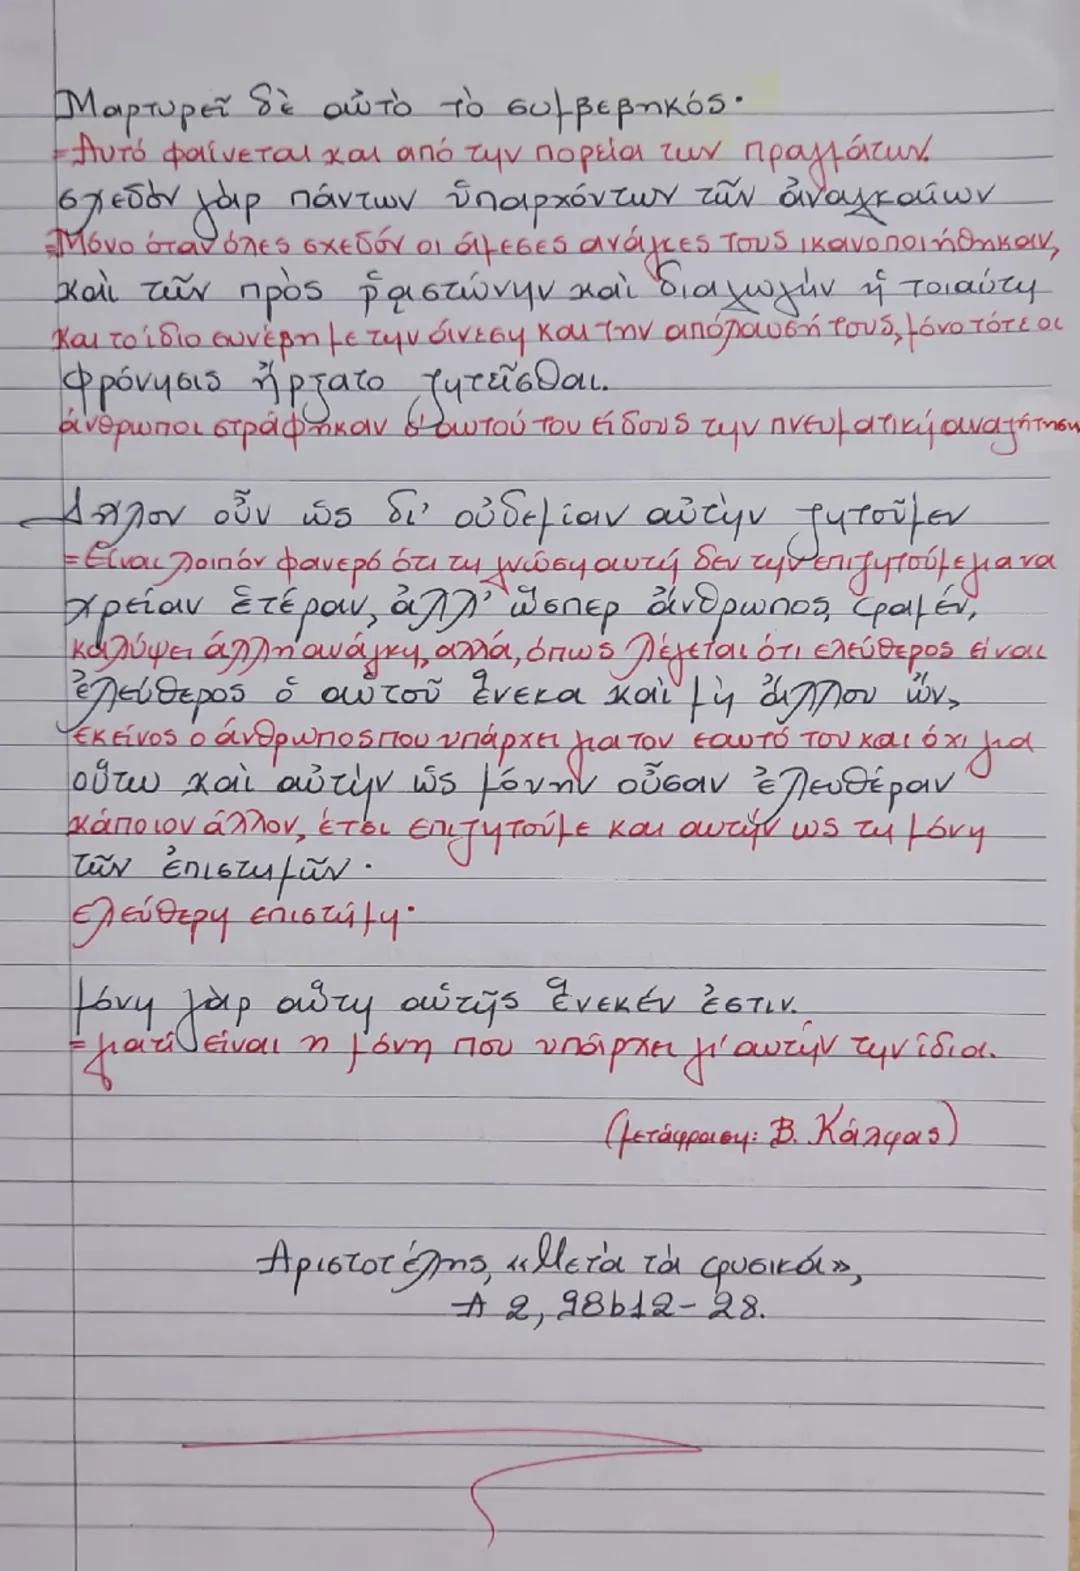 Μαρτυρεῖ δὲ αὐτὸ τὸ συμβεβηκός·
=Αυτό φαίνεται και από την πορεία των πραγμάτων.
σχεδὸν γὰρ πάντων ὑπαρχόντων τῶν ἀναγκαίων
=Μόνο όταν όλες σχεδόν οι άμεσες ανάγκες τους ικανοποιήθηκαν,
καὶ τῶν πρὸς ῥᾳστώνην καὶ διαγωγὴν ἡ τοιαύτη
και το ίδιο συνέβη με την άνεση και την απόλαυσή τους, μόνο τότε οι
φρόνησις ἤρξατο ζητεῖσθαι.
άνθρωποι στράφηκαν σ' αυτού του είδους την πνευματική αναζήτηση
Δῆλον οὖν ὡς δι' οὐδεμίαν αὐτὴν ζητοῦμεν
=Είναι λοιπόν φανερό ότι τη γνώση αυτή δεν την επιζητούμε για να
χρείαν ἑτέραν, ἀλλ' ὥσπερ ἄνθρωπος, φαμέν,
καλύψει άλλη ανάγκη, αλλά, όπως λέγεται ότι ελεύθερος είναι
ἐλεύθερος ὁ αὑτοῦ ἕνεκα καὶ μὴ ἄλλου ὤν,
εκείνος ο άνθρωπος που υπάρχει για τον εαυτό του και όχι για
οὕτω καὶ αὐτὴν ὡς μόνην οὖσαν ἐλευθέραν
κάποιον άλλον, έτσι επιζητούμε και αυτήν ως τη μόνη
τῶν ἐπιστημῶν·
ελεύθερη επιστήμη·
μόνη γὰρ αὕτη αὑτῆς ἕνεκέν ἐστιν.
=γιατί είναι η μόνη που υπάρχει γι' αυτήν την ίδια.
(μετάφραση: Β. Κάλφας)
Αριστοτέλης, «Μετὰ τὰ φυσικά»,
Α 2, 98b12-28.